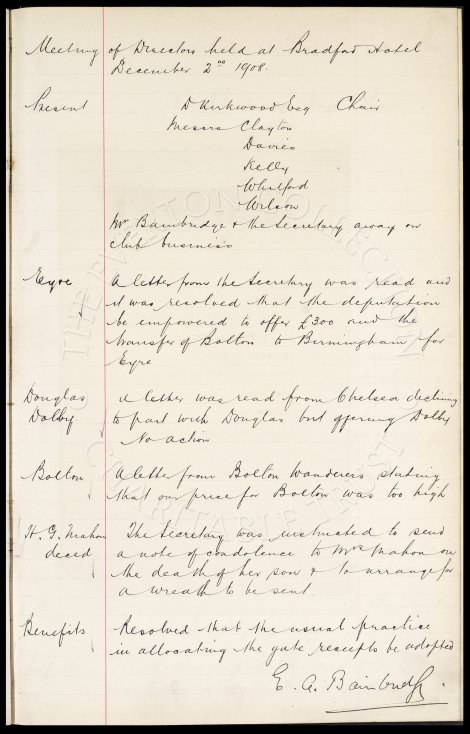 Meeting of Directors held at Bradford Hotel
December 2nd 1908.
Present D Kirkwood Esq Chair
Messrs Clayton
Davies
Kelly
Whitford
Wilson
Mr Bainbridge & the Secretary away on
club business
Eyre A letter from the Secretary was read and
it was resolved that the deputation
be empowered to offer £300 and the
transfer of Bolton to Birmingham for
Eyre
Douglas A letter was read from Chelsea declining
Dolby to part with Douglas but offering Dolby
No action
Bolton A letter from Bolton Wanderers stating
that our price for Bolton was too high
H. G. Mahon The Secretary was instructed to send
decd a note of condolence to Mrs Mahon on
the death of her son & to arrange for
a wreath to be sent.
Benefits Resolved that the usual practice
in allocating the gate receipts be adopted
E. A. Bainbridge.
THE EVERTON COLLECTION
CHARITABLE TRUST